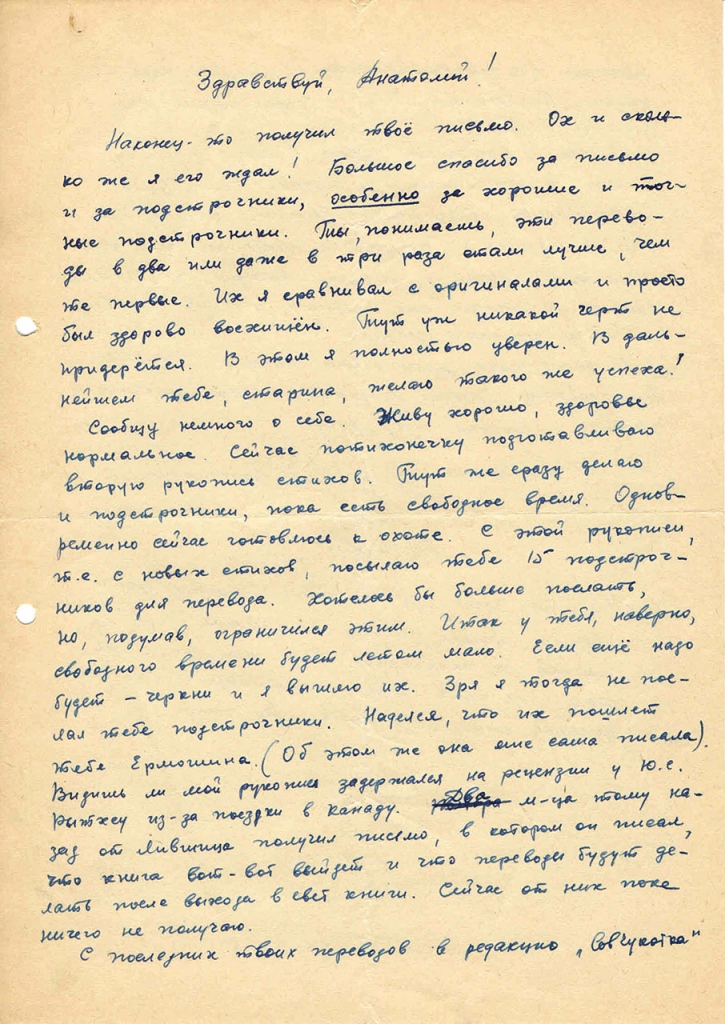 Здравствуй, Анатолий!
Наконец-то получил твоё письмо. Ох и сколь-
ко же я его ждал! Большое спасибо за письмо
и за подстрочники, особенно за хорошие и точ-
ные подстрочники. Ты, понимаешь, эти перево-
ды в два или даже в три раза стали лучше, чем
те первые. Их я сравнивал с оригиналами и просто
был здорово восхищён. Тут уж никакой черт не
придерётся. В этом я полностью уверен. В даль-
нейшем тебе, старина, желаю такого же успеха!
Сообщу немного о себе. Живу хорошо, здоровье
нормальное. Сейчас потихонечку подготавливаю
вторую рукопись стихов. Тут же сразу делаю
и подстрочники, пока есть свободное время. Однов-
ременно сейчас готовлюсь к охоте. С этой рукописи,
т.е. с новых стихов, посылаю тебе 15 подстроч-
ников для перевода. Хотелось бы больше послать,
но, подумав, ограничился этим. Итак у тебя, наверно,
свободного времени будет летом мало. Если ещё надо
будет – черкни и я вышлю их. Зря я тогда не пос-
лал тебе подстрочники. Наделся, что их пошлет
тебе Ермошина. (Об этом же она мне сама писала).
Видишь ли мой рукопись задержался на рецензии у Ю.С.
Рытхеу из-за поездки в Канаду. Два м-ца тому на-
зад от Лившица получил письмо, в котором он писал,
что книга вот-вот выйдет и что переводы будут де-
лать после выхода в свет книги. Сейчас от них пока
ничего не получаю.
С последних твоих переводов в редакцию „Совчукотка"